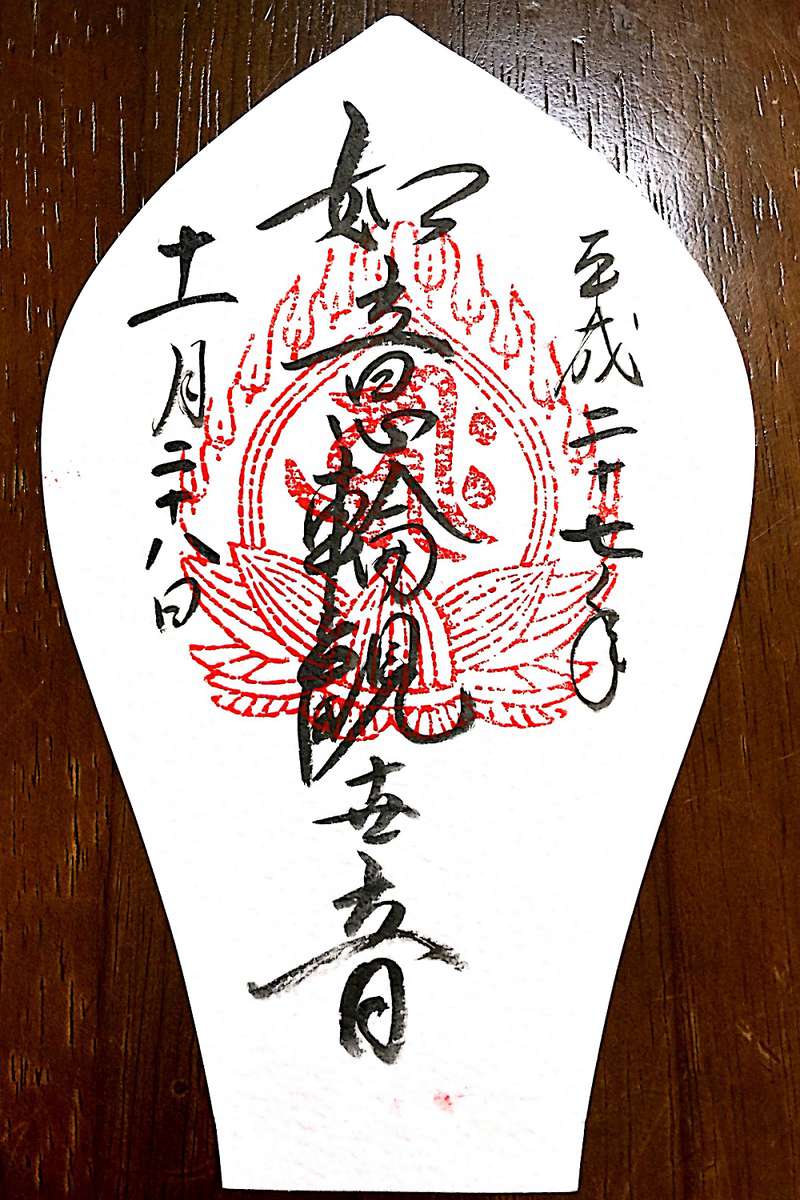 平成二十七年
如意輪観世音
十一月二十八日